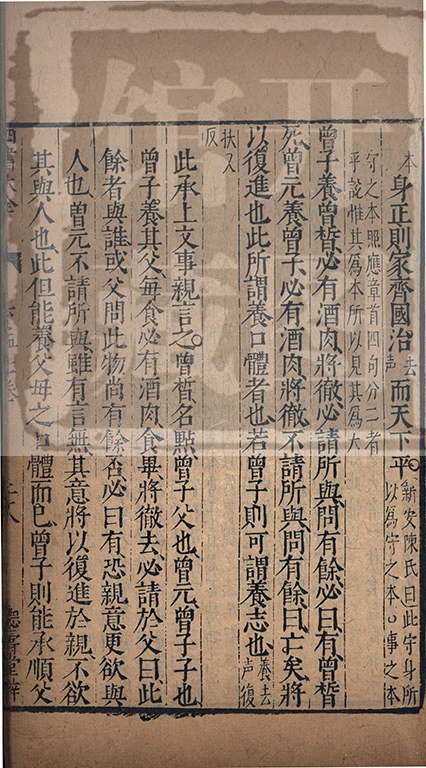 本身正則家齊國治去聲而天下平新安陳氏曰此守身所以為守之本○事之本
守之本照應章首四句分二者平說惟其為本所以見其為大
曾子養曾晳必有酒肉將徹必請所與問有餘必曰有曾晳
死曾元養曾子必有酒肉將徹不請所與問有餘曰亡矣將
以復進也此所謂養口體者也若曾子則可謂養志也養去聲復
扶又反
此承上文事親言之曾晳名點曾子父也曾元曾子子也
曾子養其父每食必有酒肉食畢將徹去必請於父曰此
餘者與誰或父問此物尚有餘否必曰有恐親意更欲與
人也曾元不請所與雖有言無其意將以復進於親不欲
其與人也此但能養父母之口體而已曾子則能承順父
四書大全
二十八